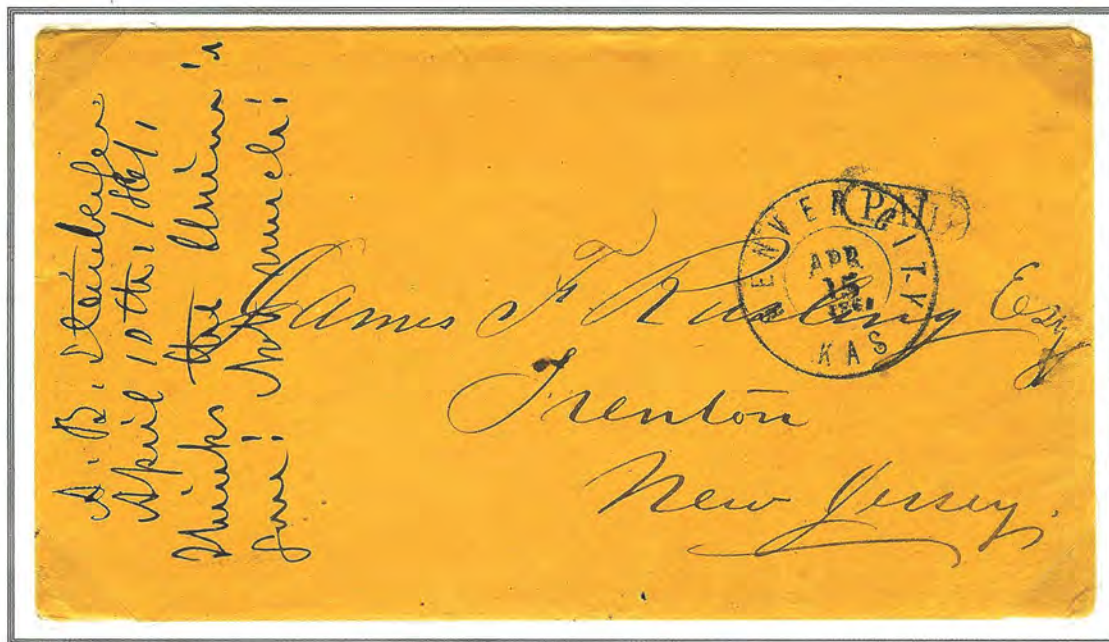 A. B.
April 10th, 1861,
Thinks the Union's
gone! Not much!
PAID
DENVER CITY
APR
15
1861
KAS
James F. Rusling Esq
Trenton
New Jersey.